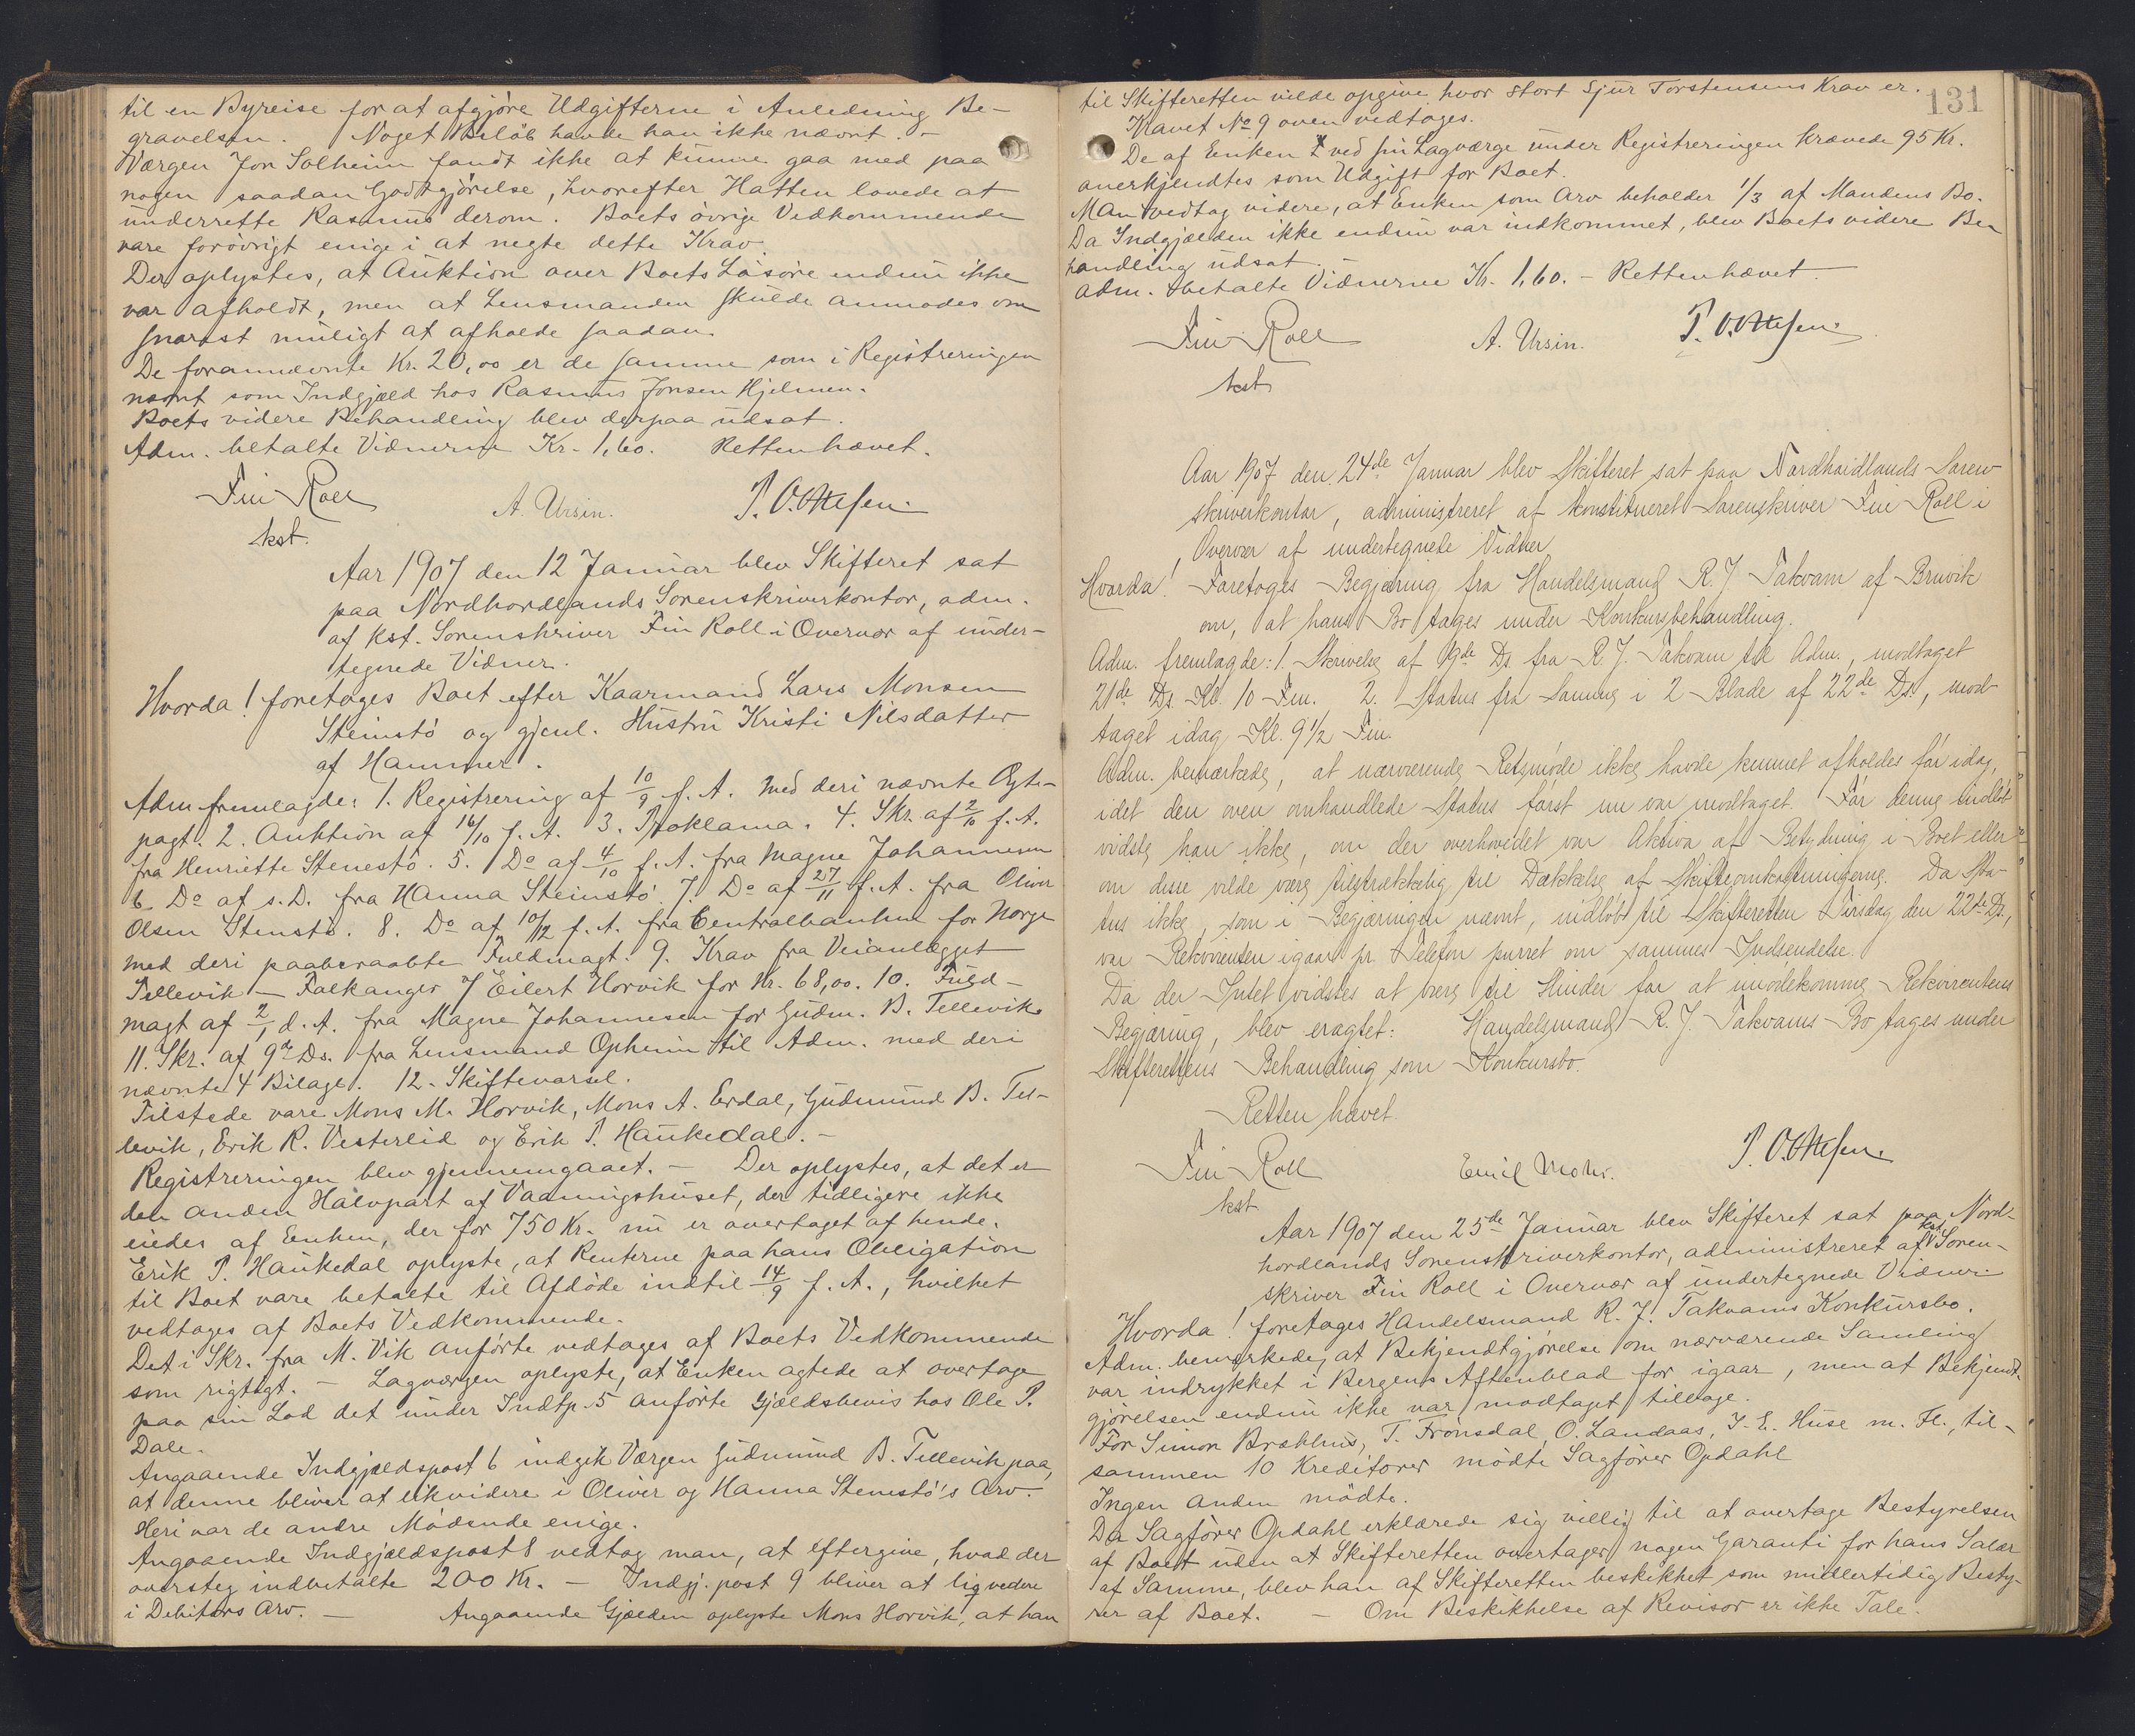 til en Byreise for at afgjøre Udgifterne i Anledning Be-
gravelsen. Noget Beløb havde han ikke nævnt. -
Værgen Jon Solheim fandt ikke at kunne gaa med paa
nogen saadan Godtgjørelse, hvorefter Hatten lovede at
underrette Rasmus derom. Boets øvrige Vedkommende
vare forøvrigt enige i at negte dette Krav.
Der oplystes, at Auktion over Boets Løsøre endnu ikke
var afholdt, men at Lensmanden skulde anmodes om
snarest muligt at afholde saadan.
De forannævnte Kr. 20,00 er de samme som i Registreringen
nævnt som Indgjæld hos Rasmus Jonsen Hjelmen.
Boets videre Behandling blev derpaa udsat.
Adm. betalte Vidnerne Kr. 1,60. Retten hævet.
Fin Roll A. Ursin. P. O. Ottesen.
kst.
Aar 1907 den 12 Januar blev Skifteret sat
paa Nordhordlands Sorenskriverkontor, adm.
af kst. Sorenskriver Fin Roll i Overvær af under-
tegnede Vidner.
Hvorda! foretages Boet efter Kaarmand Lars Monsen
Steinstø og gjenl. Hustru Kristi Nilsdatter
af Hammer.
Adm fremlagde: 1. Registrering af 10/9 f. A. med deri nævnte Ægte-
pagt. 2. Auktion af 16/10 f. A. 3. Proklama. 4. Skr. af 2/10 f. A.
fra Henriette Stenestø. 5. Do af 4/10 f. A. fra Magne Johannesen
6 Do af s. D. fra Hanna Steinstø. 7. Do af 27/11 f. A. fra Oliver
Olsen Stenstø. 8. Do af 10/12 f. A. fra Centralbanken for Norge
med deri paaberaabte Fuldmagt. 9. Krav fra Veianlægget
Tellevik - Falkanger / Eilert Horvik for Kr. 68,00. 10. Fuld-
magt af 2/1 d. A. fra Magne Johannesen for Gudm. B. Tellevik.
11. Skr. af 9de Ds. fra Lensmand Opheim til Adm. med deri
nævnte 4 Bilage. 12. Skiftevarsel.
Tilstede vare Mons M. Horvik, Mons A. Erdal, Gudmund B. Tel-
levik, Erik R. Vesterlid og Erik P. Haukedal. -
Registreringen blev gjennemgaaet. - Der oplystes, at det er
den anden Halvpart af Vaaningshuset, der tidligere ikke
eiedes af Enken, der for 750 Kr. nu er overtaget af hende.
Erik P. Haukedal oplyste, at Renterne paa hans Obligation
til Boet vare betalte til Afdøde indtil 14/9 f. A., hvilket
vedtages af Boets Vedkommende.
Det i Skr. fra M. Vik anførte vedtages af Boets Vedkommende
som rigtigt. - Lagværgen oplyste, at Enken agtede at overtage
paa sin Lod det under Indtp. 5 anførte Gjældsbevis hos Ole P.
Dale.
Angaaende Indgjældspost 6 indgik Værgen Gudmund B. Tellevik paa,
at denne bliver at likvidere i Oliver og Hanna Stenestø's Arv.
Heri var de andre Mødende enige.
Angaaende Indgjældspost 8 vedtog man, at eftergive, hvad der
oversteg indbetalte 200 Kr. - Indgj. post 9 bliver at ligvedere
i Debitors Arv. - Angaaende Gjælden oplyste Mons Horvik, at han
131
til Skifteretten vilde opgive hvor stort Sjur Torstensens Krav er.
Kravet No 9 oven vedtoges.
De af Enken ved sin Lagværge under Registreringen krævede 95 Kr.
anerkjendtes som Udgift for Boet.
Man vedtog videre, at Enken som Arv beholder 1/3 af Mandens Bo.
Da Indgjælden ikke endnu var indkommet, blev Boets videre Be-
handling udsat.
Adm. betalte Vidnerne Kr. 1,60. - Retten hævet.
Fin Roll A. Ursin. P. O. Ottesen.
kst
Aar 1907 den 24de Januar blev Skifteret sat paa Nordhordlands Soren-
skriverkontor, administreret af konstitueret Sorenskriver Fin Roll i
Overvær af undertegnede Vidner
Hvorda! Foretoges Begjæring fra Handelsmand R. J. Takvam af Bruvik
om, at hans Bo tages under Konkursbehandling.
Adm. fremlagde: 1. Skrivelse af 19de Ds. fra R. J. Takvam til Adm., modtaget
21de Ds. Kl. 10 Fm. 2. Status fra Samme i 2 Blade af 22de Ds., mod-
taget idag Kl. 9 1/2 Fm.
Adm. bemærkede, at nærværende Retsmøde ikke havde kunnet afholdes før idag,
idet den oven omhandlede Status først nu var modtaget. Før denne indløb
vidste han ikke, om der overhovedet var Aktiva af Betydning i Boet eller
om disse vilde være tilstrækkelig til Dækkelse af Skifteomkostningerne. Da Sta-
tus ikke, som i Begjæringen nævnt, indløb til Skifteretten Tirsdag den 22de Ds.,
var Rekvirenten igaar pr. Telefon purret om sammes Indsendelse.
Da der Intet vidstes at være til Hinder for at imødekomme Rekvirentens
Begjæring, blev eragtet: Handelsmand R. J. Takvams Bo tages under
Skifterettens Behandling som Konkursbo.
Retten hævet.
Fin Roll Emil Mohr. P. O. Ottesen.
kst
Aar 1907 den 25de Januar blev Skifteret sat paa Nord-
hordlands Sorenskriverkontor, administreret af kst. Soren-
skriver Fin Roll i Overvær af undertegnede Vidner.
Hvorda! foretages Handelsmand R. J. Takvams Konkursbo.
Adm. bemærkede, at Bekjendtgjørelse om nærværende Samling
var indrykket i Bergens Aftenblad for igaar, men at Bekjendt-
gjørelsen endnu ikke var modtaget tilbage.
For Simon Brækhus, T. Fronsdal, O. Landaas, I. E. Huse m. Fl., til-
sammen 10 Kreditorer mødte Sagfører Opdahl
Ingen anden mødte.
Da Sagfører Opdahl erklærede sig villig til at overtage Bestyrelsen
af Boet uden at Skifteretten overtager nogen Garanti for hans Salær
af Samme, blev han af Skifteretten beskikket som midlertidig Besty-
rer af Boet. - Om Beskikkelse af Revisor er ikke Tale.